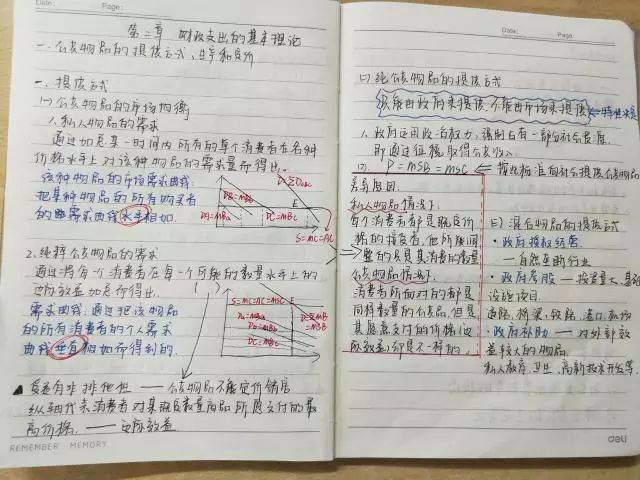 Date: Page:
第二章 财政支出的基本理论
一、公共物品的提供方式、生产和定价
一、提供方式
(一)公共物品的市场均衡
1.私人物品的需求
通过加总某一时间内所有的单个消费者在各种
价格水平上对该种物品的需求量而得出。
该种物品的市场需求曲线
把某种物品的所有购买者
的需求曲线水平相加.
D=ΣDabc
DB=MBb
DA=MBa
DC=MBc
E
S=MC=AC
2.纯粹公共物品的需求
通过将每一个消费者在每一个可能的数量水平上的
边际效益加总而得出.
需求曲线.通过把该物品
的所有消费者的个人需求
曲线垂直相加而得到的.
S=MC=AC=MSC E
Da=MBa
Db=MBb
DC=MBc
D=ΣMB
=MSB
▲ 受益有非排他性 —— 公共物品不能定价销售
纵轴代表消费者对某既定数量商品所愿支付的最
高价格. —— 边际效益
REMEMBER · MEMORY.
Date: Page:
(二)纯公共物品的提供方式
只能由政府来提供,不能由市场来提供
1.政府运用政治权力,强制占有一部分社会资源,
即通过征税取得公共收入
(2). P=MSB=MSC
差异原因.
私人物品情况下:
每个消费者都是既定价
格的接受者,他所能调
整的只是其消费的数量
公共物品情况下:
消费者所面对的都是
同样数量的公共品,但是
其愿意支付的价格(边
际效益)却是不一样的.
(三)混合物品的提供方式
·政府授权经营
—自然垄断行业
·政府参股 — 投资量大.基础
设施项目.
道路、桥梁、铁路、港口、高速
·政府补助 — 对外部效
益较大的物品.
私人教育、卫生、高新技术开发等.
deli